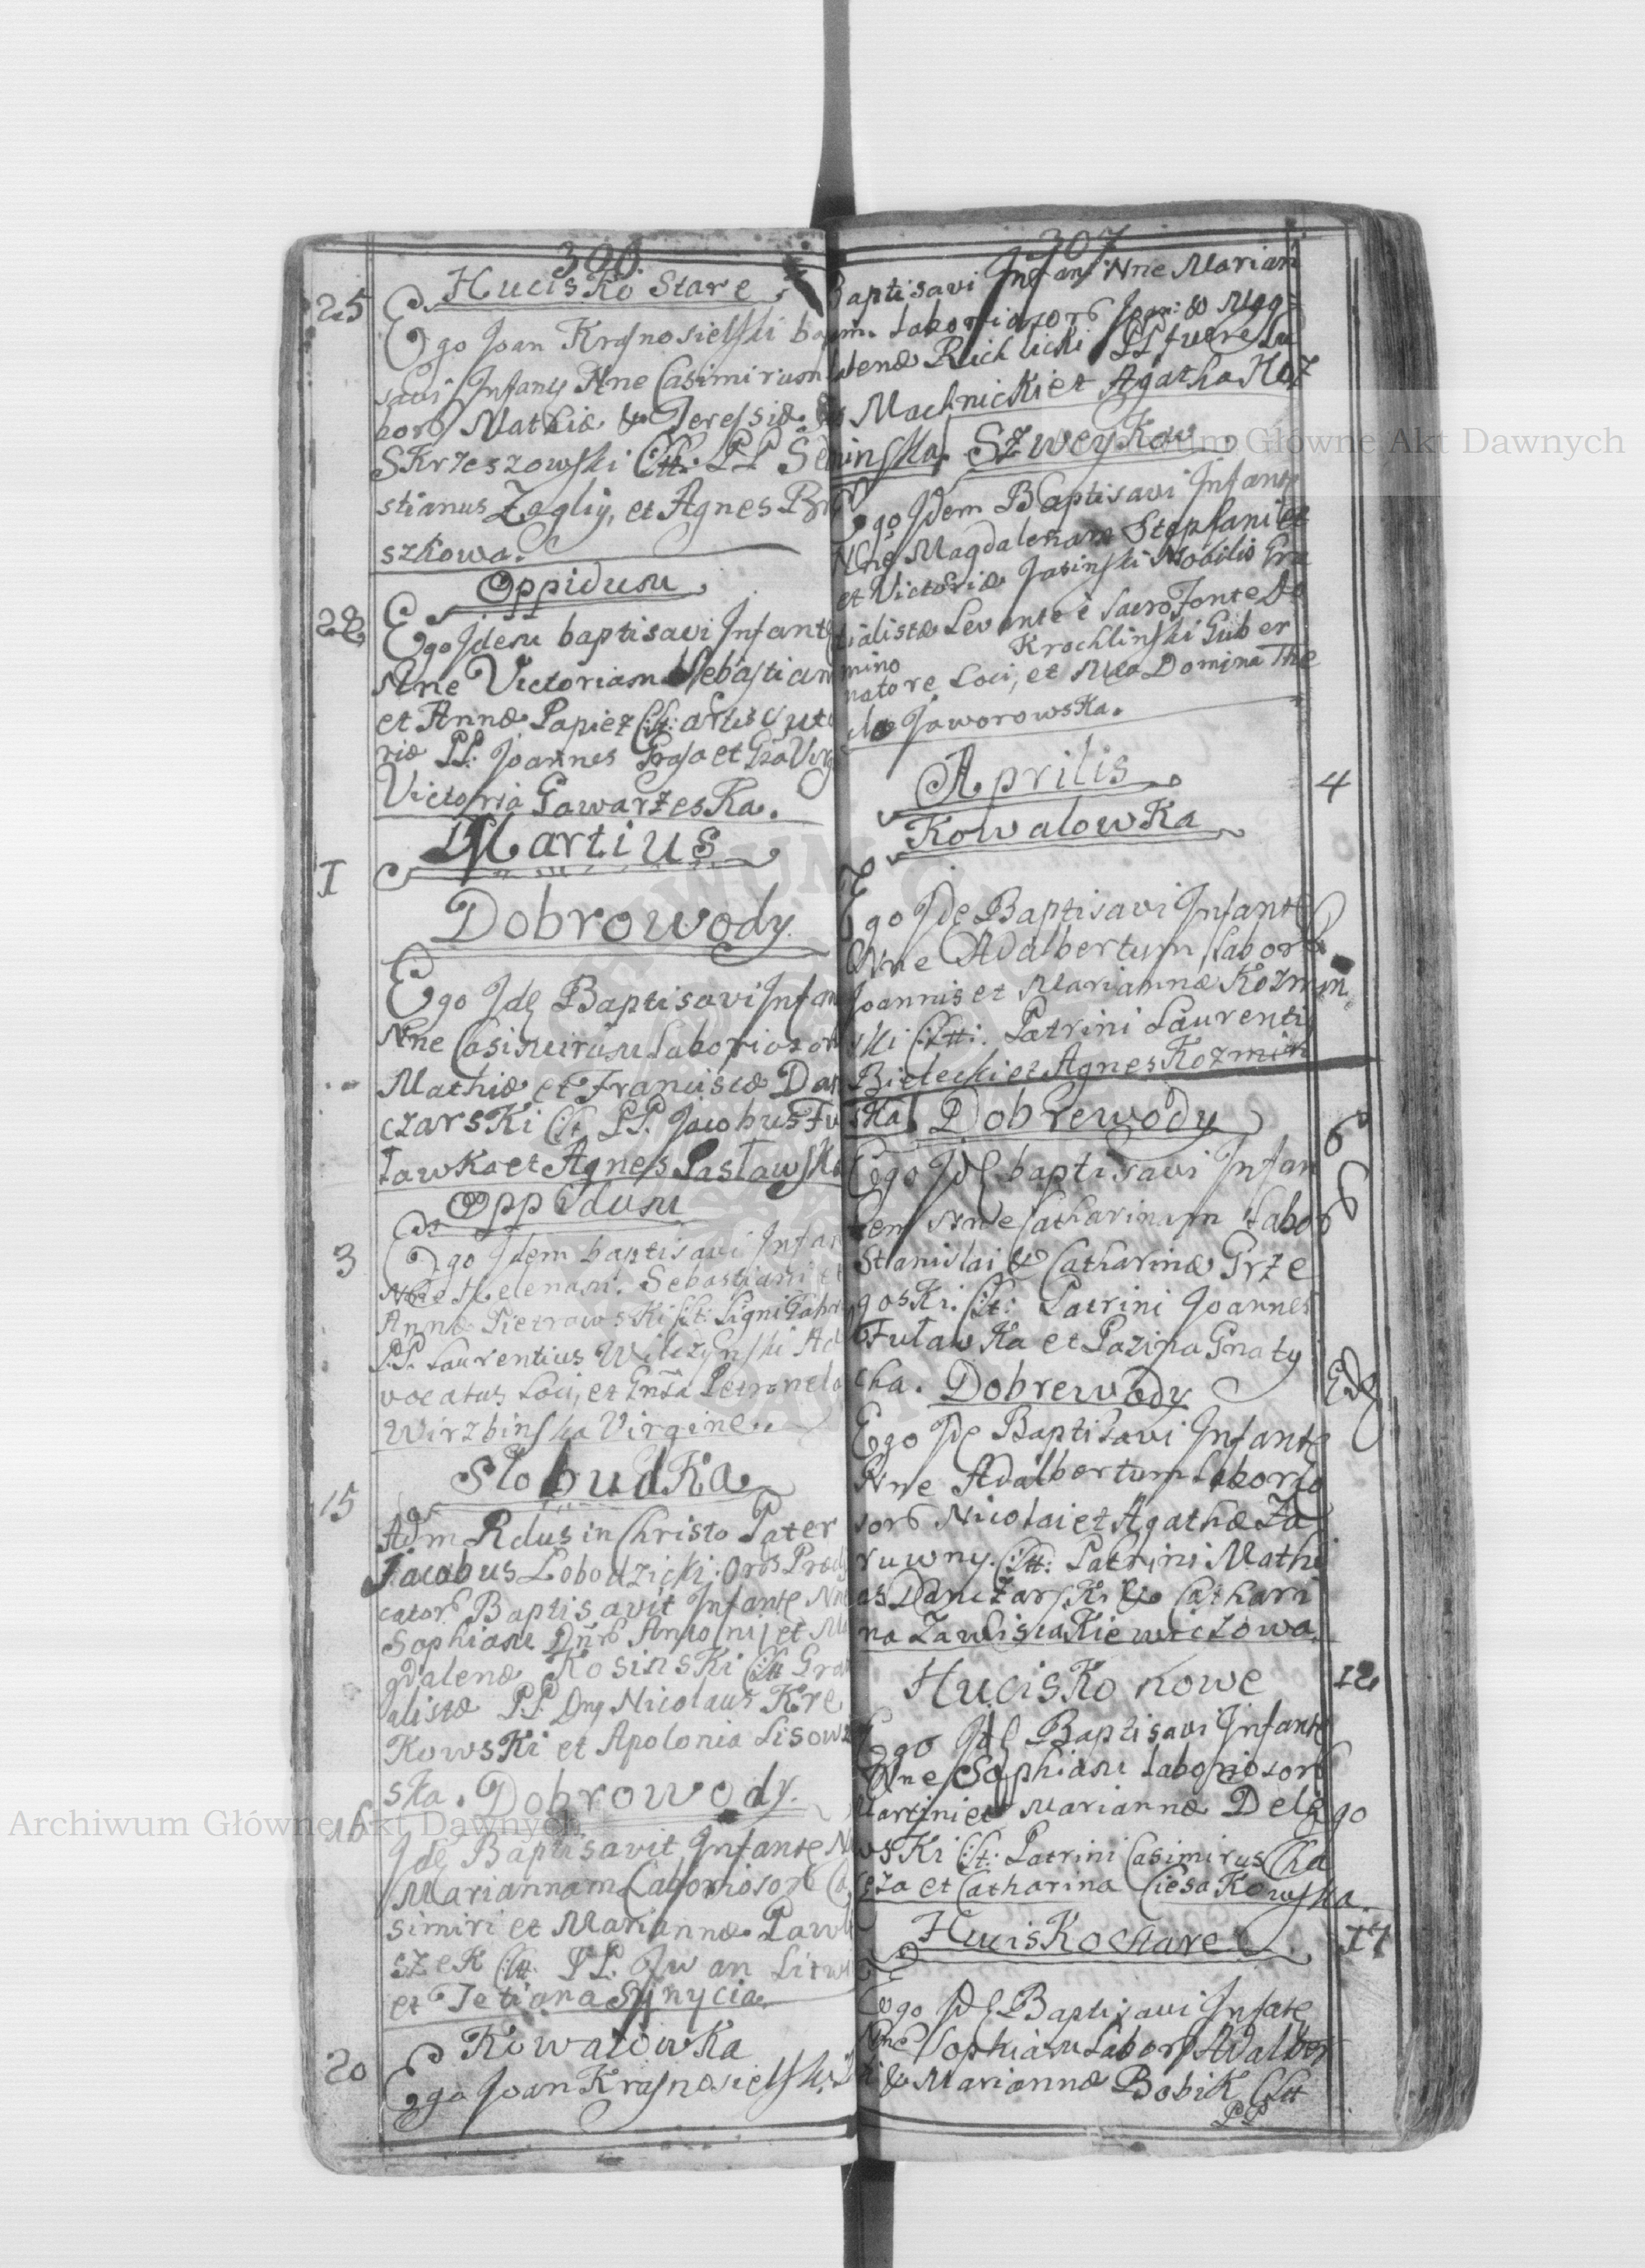 306
Hucisko Stare
25
Ego Joan Krasnosielski bap
savi Infans Nne Casimirum
bor Mathiæ & Teressiæ
Skrzeszowski C.lt: PP Seba
stianus Zeglij, et Agnes
szkowa.
Oppidum
28
Ego Idem baptisavi Infante
Nne Victoriam Sebastian
et Annæ Papiez C:lt: artis suto
riæ PP. Joannes Grasa et Gsa Virg
Victoria Gawarzeska.
Martius
1
Dobrowody.
Ego Idē Baptisavi Infan
Nne Casimirum Laboriosor
Mathiæ et Franciscæ Dan
czarski C.lt PP. Jacobus Fu
ławka et Agnes Pasławska
Oppidum
3
Ego Idem baptisavi Infan
Nne Helenam. Sebastiani et
Annæ Pietrowski C:lt: Ligni Fabri
P.P. Laurentius Wilczynski Ad
vocatus Loci, et Gnsa Petronela
Wirzbinska Virgine.
Słobudka
15
Adm Rdus in Christo Pater
Jacobus Lobodzicki Ords Prædi
cator Baptisavit Infantē Nne
Sophiam Dnr Antoinij et Ma
gdalenæ Kosinski C:lt Gra
alistæ P.P. Dng Nicolaus Kre
kowski et Apolonia Lisow
ska. Dobrowody.
16
Idē Baptisavit Infantē N
Mariannam Laboriosor Ca
simiri et Mariannæ Pawl
szek C:lt. PP. Iwan Litw
et Tetiana Synycia.
Kowalowka
20
Ego Joan Krasnosielski.
307
Baptisavi Infans Nne Marian
am. Laboriosor Joan: & Mag
dalenæ Richlicki PP fuere Lu
Machnicki et Agatha Koz
inska. Szweykow
Ego Idem Baptisavi Infante
Nne Magdalenam Stephani
et Victoriæ Jasinski Nobilis Gra
cialistæ Levante è Sacro Fonte Do
mino Krochlinski Guber
natore Loci, et Mea Domina The
cla Jaworowska.
Aprilis
4
Kowalowka
Ego Idē Baptisavi Infantē
Nne Adalbertum Labor
Joannis et Mariannæ Kozmin
ski C:lt: Patrini Laurenti
Bielecki et Agnes Kozmin
ska. Dobrewody
6
Ego Idē baptisavi Infan
tem Nne Catharinam Labor
Stanislai & Catharinæ Grze
goski. C:lt: Patrini Joannes
Fuławka et Pazina Gnaty
cha. Dobrewody
Ed
Ego Idē Baptisavi Infante
Nne Adalbertum Laborio
sor Nicolai et Agathæ Za
ruwny. C:lt: Patrini Mathi
as Danczarski & Cathari
na Zawliskiewiczowa.
Hucisko nowe
12
Ego Idē Baptisavi Infante
Nne Sophiam Laboriosor
Martini et Mariannæ Delego
wski C:lt: Patrini Casimirus Cha
sza et Catharina Ciesakowska.
Hucisko stare
17
Ego Idē Baptisavi Infatē
Nne Sophiam Labor Adalber
ti & Mariannæ Bobik C:lt
PP
Archiwum Główne Akt Dawnych
Archiwum Główne Akt Dawnych